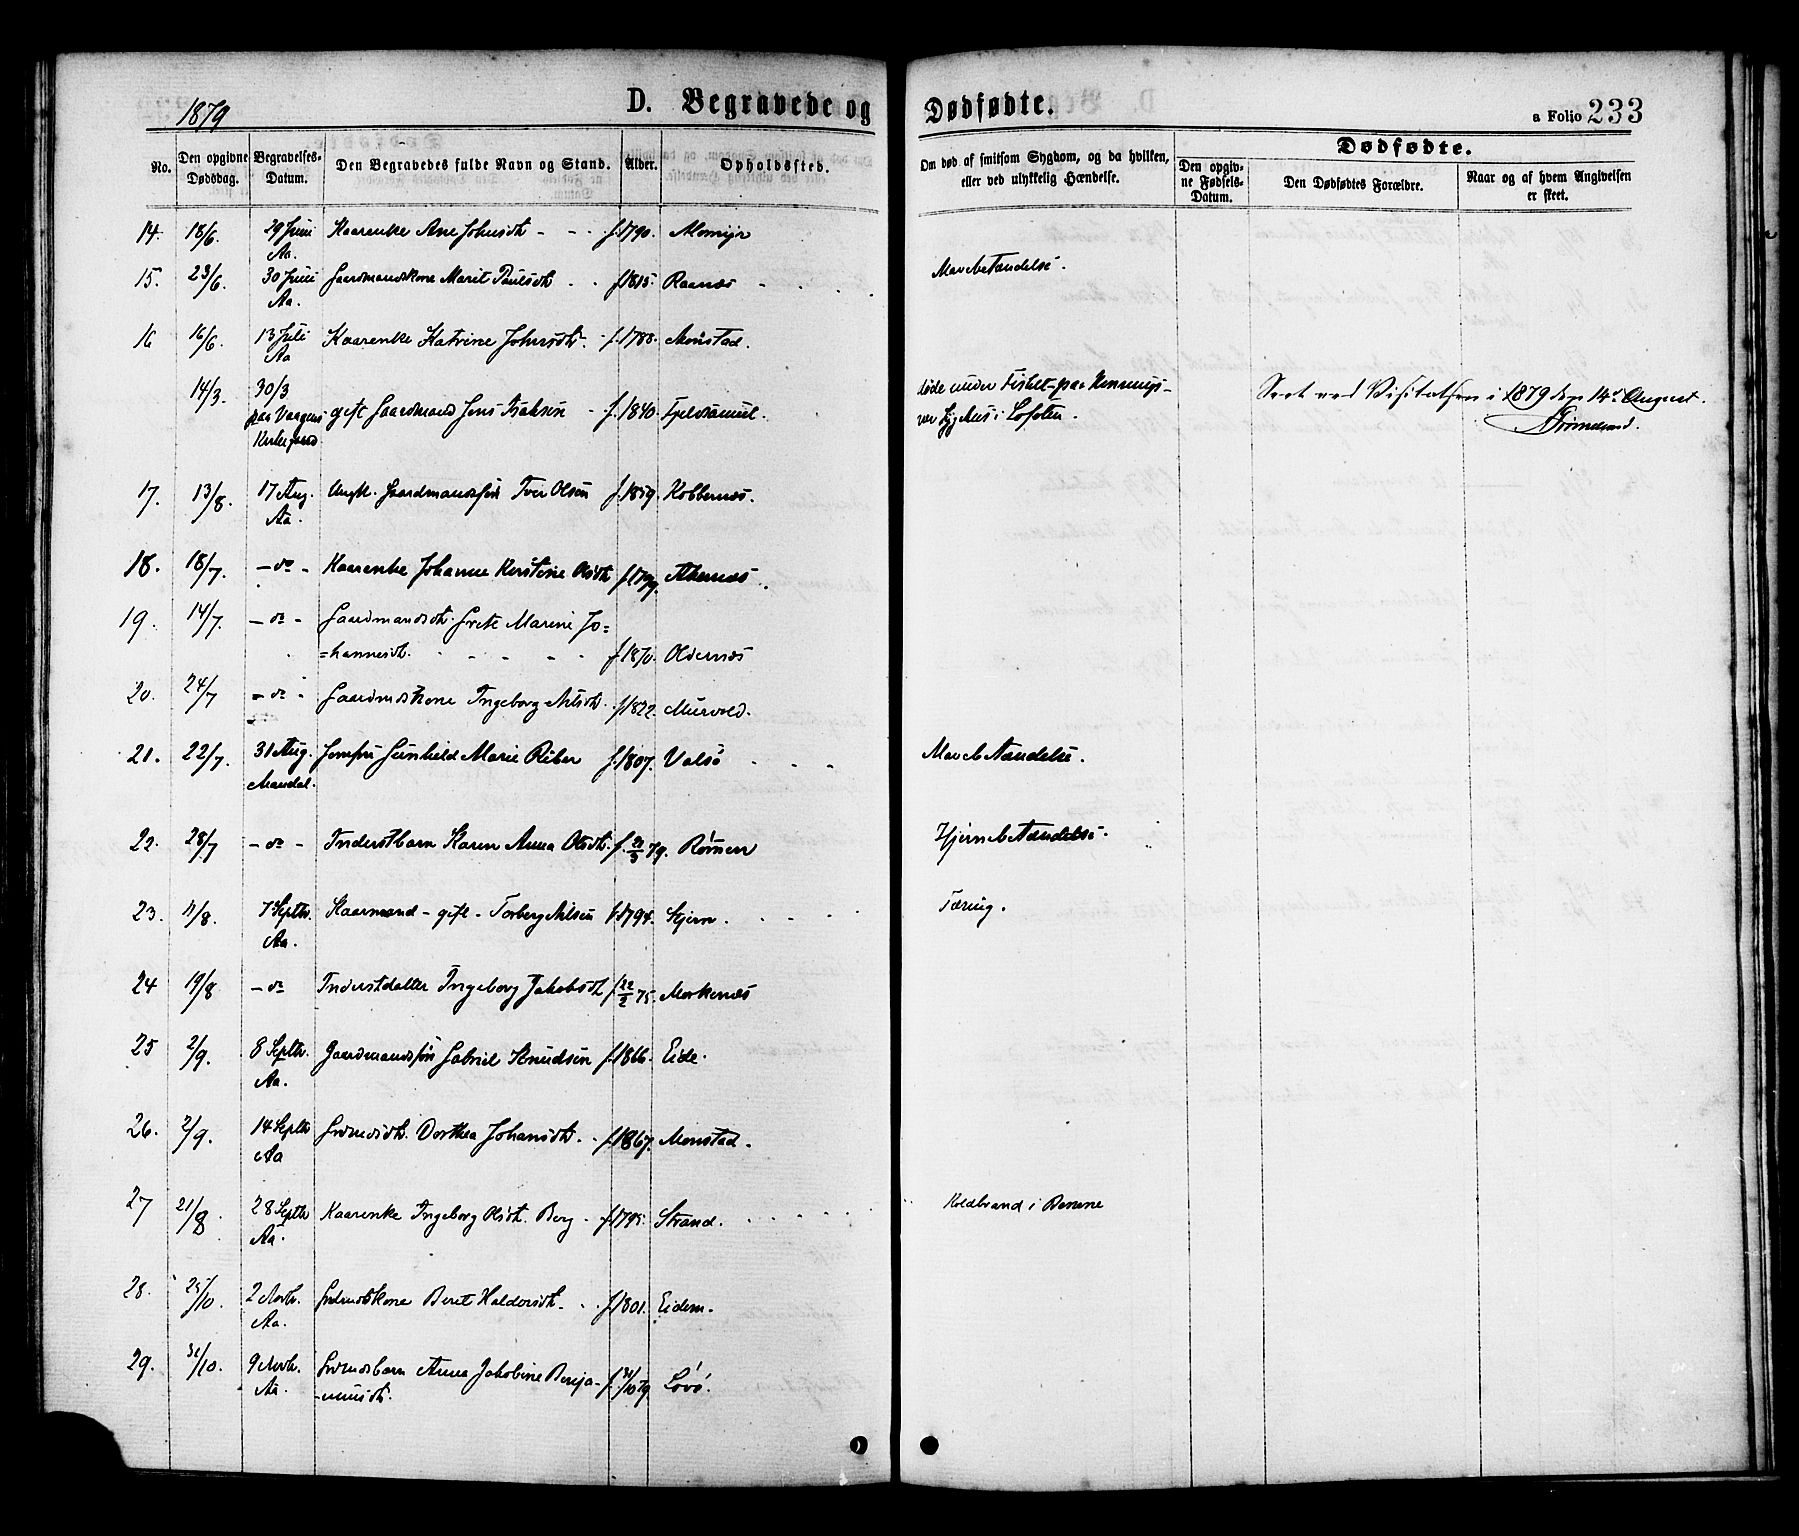 1879
D. Begravede og Dødfødte.
a Folio 233
No.
Den opgivne Dødsdag.
Begravelses-Datum.
Den Begravedes fulde Navn og Stand.
Alder.
Opholdssted.
Om død af smitsom Sygdom, og da hvilken, eller ved ulykkelig Hændelse.
Dødfødte.
Den opgivne Fødsels-Datum.
Den Dødfødtes Forældre.
Naar og af hvem Angivelsen er skeet.
14. 18/6. 29 Juni Kaarenke Ane Johnsdt - - . f. 1790.
Aa.
15. 23/6. 30 Juni Gaardmandskone Marit Paulsdt . . f. 1815. Raanæs - . . . Mavebetændelse.
Aa.
16 16/6. 13 Juli Kaarenke Katrine Johnsdt. - f. 1788. Monstad.
Aa
14/3. 30/3
paa Vaagens gift Gaardmand Jens Isaksen - f. 1840. døde under Fisket paa Hennings-
Kirkegaard vær i Lofoten.
Seet ved Visitatsen i 1879 den 14d August.
17. 13/8. 17 Aug. Ungk. Gaardmandssøn Iver Olsen f. 1859. Kobbernæs.
Aa.
18. 18/7. - do - Kaarenke Johanna Kerstine Olsdt f. Akernæs.
19. 14/7. - do - Gaardmandsdt. Grete Marine Jo=
=hannesdt. - - - - f. 1870. Oldernæs
20. 24/7 - do - Gaardmdskone Ingeborg Nilsdt. f. 1822. Murvold.
21. 22/7. 31 Aug. Jomfru Gunhild Marie Riber f. 1807. Valsø - - - Mavebetændelse.
Mandal.
22. 28/7 - do - Inderstbarn Karen Anna Olsdt. f. 79. Hjernebetændelse.
23. 11/8. 7 Septbr. Kaarmand - gift - Torberg Nilsen f. 1794. Stjern. - - - Tæring.
Aa.
24 19/8 - do Inderstdatter Ingeborg Jakobsdt f. 22/2 75. Morkenæs
25 2/9. 8 Septbr. Gaardmandssøn Gabriel Knudsen f. 1866. Eide.
Aa.
26. 2/9. 14 Septbr Grdmdsdt. Dorthea Johansdt. - f. 1867. Monstad.
Aa
27 21/8. 28 Septbr Kaarenke Ingeborg Olsdt. Berg - f. 1795. Strand. - - - Koldbrand i Benene
Aa.
28. 25/10. 2 Novbr. Grdmdskone Beret Haldorsdt - . f. 1801. Eidem.
Aa.
29. 31/10. 9 Novbr. Grdmdsbarn Anna Jakobine Benja-
Aa. -minsdt. f. /10 79. Lovø.